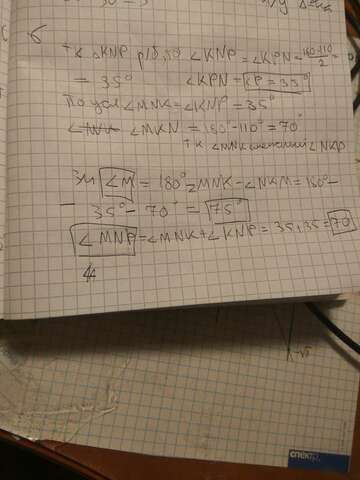 6
т.к ΔKNP р/б, то ∠KNP = ∠KPN = 180-110/2 =
= 35° ∠KPN = ∠P = 35°
По усл ∠MNK = ∠KNP = 35°
∠MKN = 180° - 110° = 70°
т к ∠MNK смежный ∠NKP
Зн ∠M = 180° - ∠MNK - ∠NKM = 180° -
- 35° - 70° = 75°
∠MNP = ∠MNK + ∠KNP = 35+35 = 70
-√5
спектр.